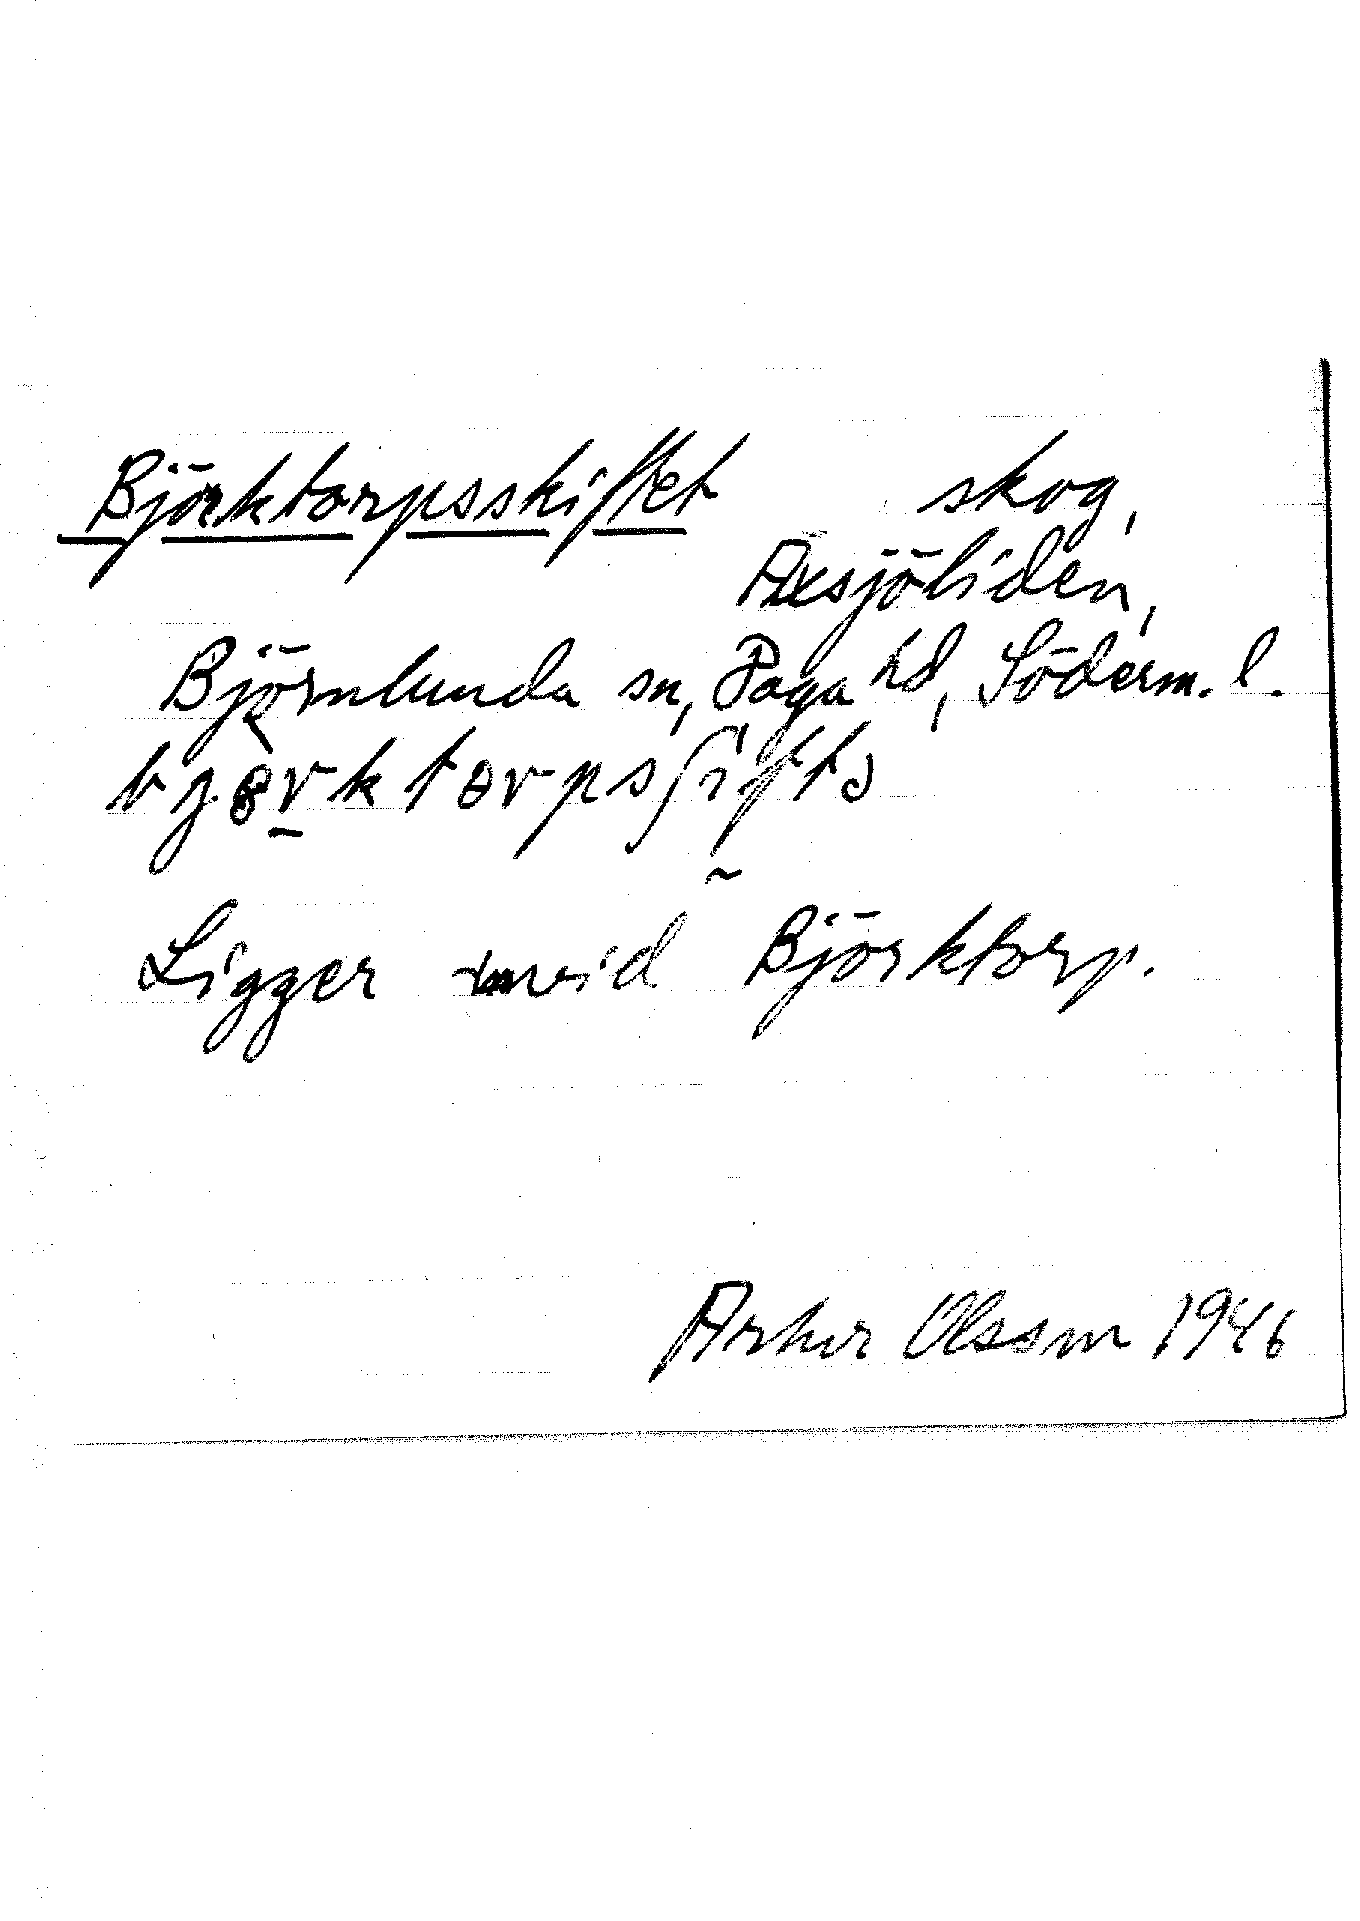 Björktorpsskiftet skog,
Axsjöliden,
Björnlunda sn, Daga hd, Söderm. l.
Ligger vid Björktorp.
Arthur Olsson 1946